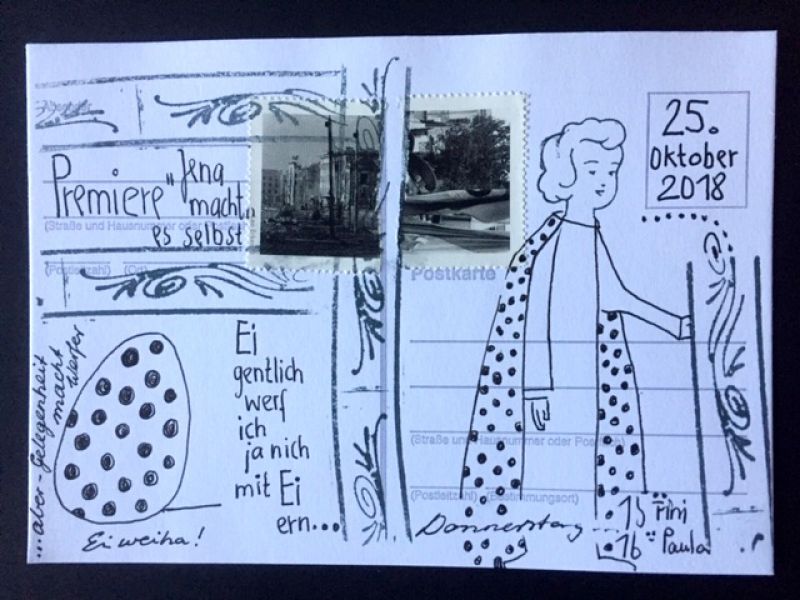 Premiere "Jena
macht"
es selbst
(Straße und Hausnummer oder
(Postleitzahl) (Ort)
...aber-Gelegenheit
macht
Werfer
Ei
gentlich
werf
ich
ja nich
mit Ei
ern...
Ei weiha!
25.
Oktober
2018
Postkarte
(Straße und Hausnummer oder Postfach)
(Postleitzahl) (Bestimmungsort)
Donnerstag
15 Fini
16 Paula